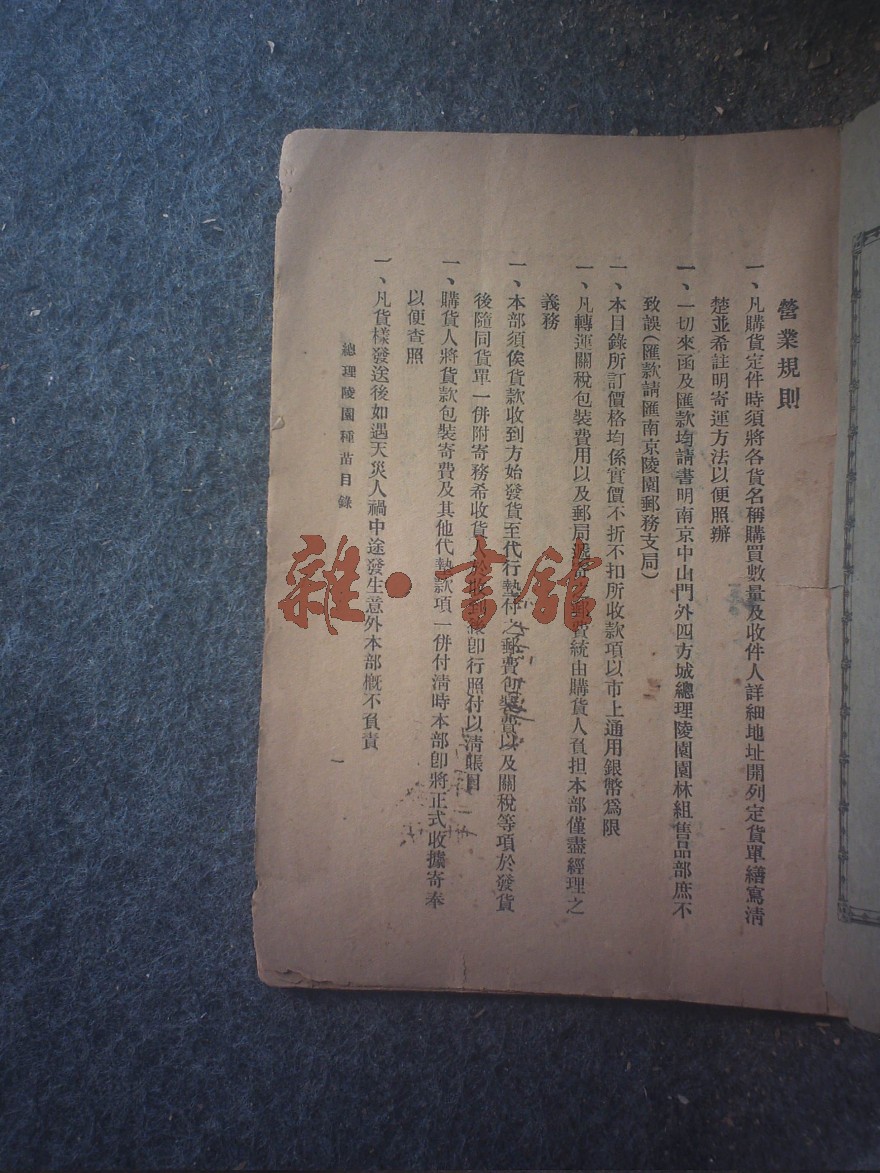 營業規則
一、凡購貨定件時須將各貨名稱購買數量及收件人詳細地址開列定貨單繕寫清
楚並希註明寄運方法以便照辦
一、一切來函及匯款均請書明南京中山門外四方城總理陵園園林組售品部庶不
致誤(匯款請匯南京陵園郵務支局)
一、本目錄所訂價格均係實價不折不扣所收款項以市上通用銀幣爲限
一、凡轉運關稅包裝費用以及郵局 費統由購貨人負担本部僅盡經理之
義務
一、本部須俟貨款收到方始發貨至代行墊付之郵費包裝費以及關稅等項於發貨
後隨同貨單一併附寄務希收貨人於收到後即行照付以清賬目
一、購貨人將貨款包裝寄費及其他代墊款項一併付清時本部卽將正式收據寄奉
以便查照
一、凡貨樣發送後如遇天災人禍中途發生意外本部槪不負責
總理陵園種苗目錄
一
雜·書館